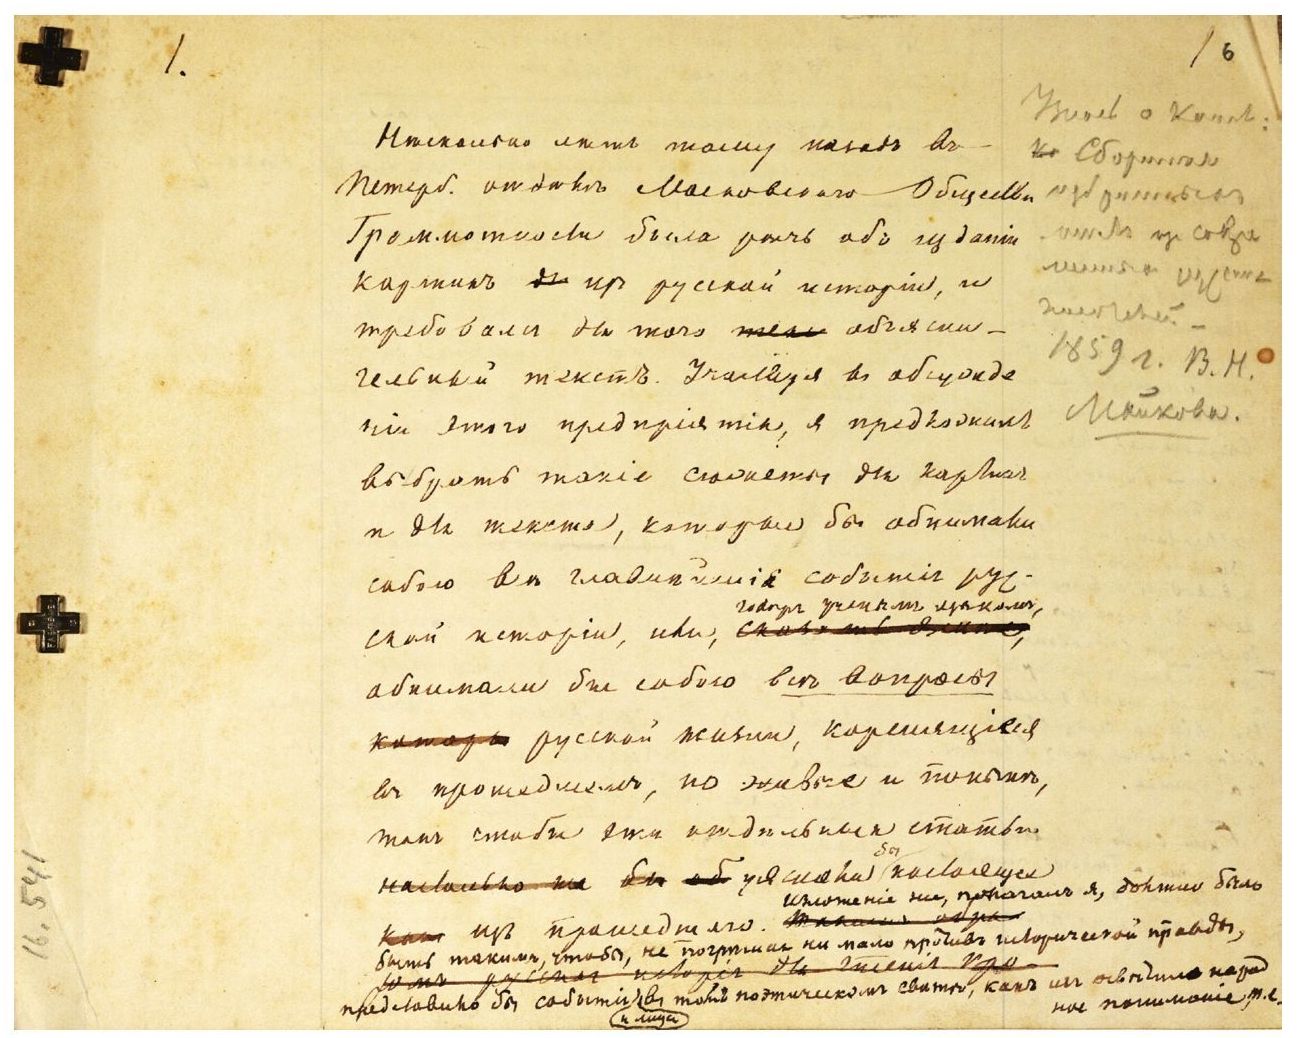 1.
6
Нѣсколько лѣтъ тому назадъ въ
Петерб. отдѣлѣ Московскаго Общества
Грамотности была рѣчь объ изданіи
картинъ изъ русской исторіи, и
требовался для того объясни-
тельный текстъ. Участвуя въ обсужде
ніи этого предпріятія, я предложилъ
выбрать такіе сюжеты для картинъ
и для текста, которые бы обнимали
собою всѣ главнѣйшія событія рус-
ской исторіи, или, говоря ученымъ языкомъ,
обнимали бы собою всѣ вопросы
которы русской жизни, коренящіеся
въ прошедшемъ, но живые и понынѣ,
такъ чтобы эти отдѣльныя статьи
настолько бы об уясняли бы настоящее
изъ прошедшаго. Изложеніе же, полагалъ я, должно было
быть такимъ, чтобы, не погрѣшая ни мало противъ исторической правды,
русская исторія для чтенія
представить бы событія и лица въ томъ поэтическомъ свѣтѣ, какъ ихъ освѣтило народ
ное пониманіе, т.е.
о
Сборника
1859 г. В. Н.
Майкова.
16.541